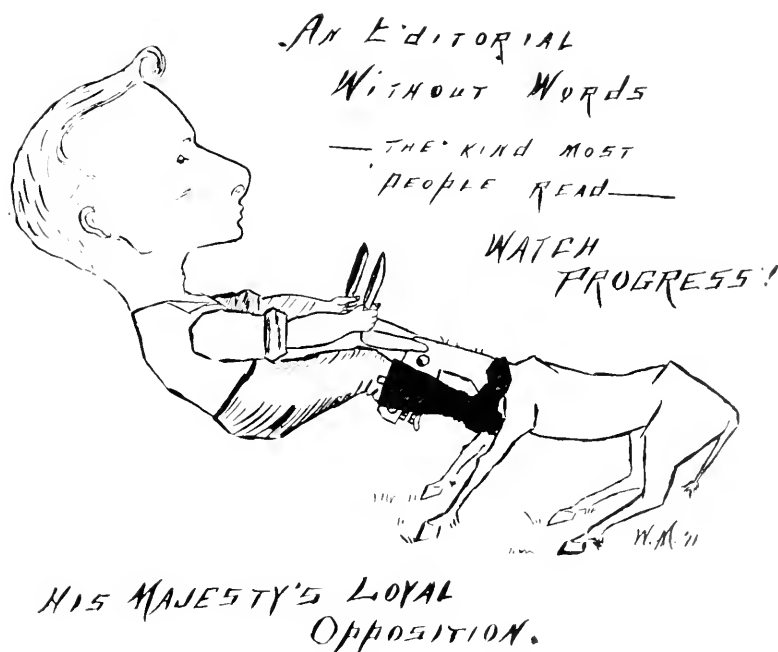 An Editorial
Without Words
— The kind most
people read —
Watch
Progress!
W.M. '11
His Majesty's Loyal
Opposition.